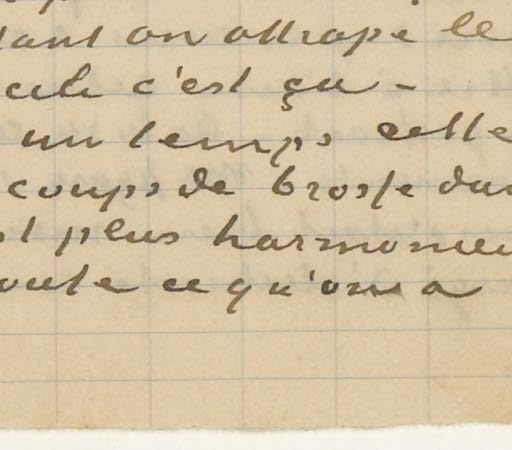 tant on attrape le
c'est ça -
un temps cette
coups de brosse dan
st plus harmonieu
oute ce qu'on a